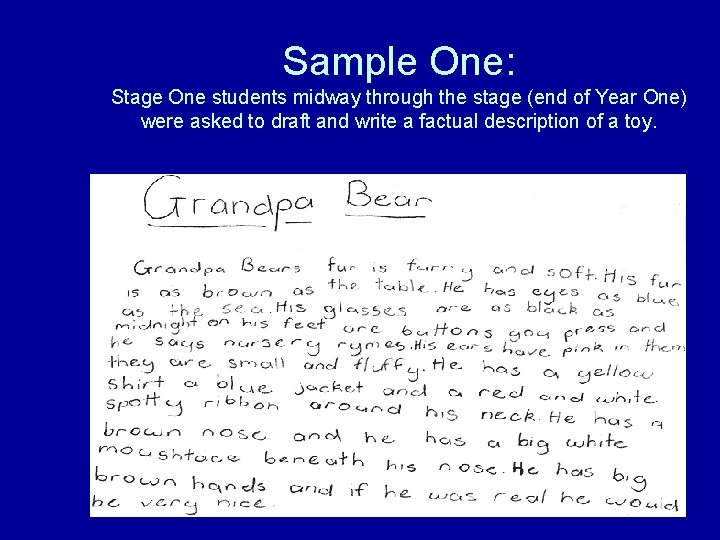 Sample One:
Stage One students midway through the stage (end of Year One)
were asked to draft and write a factual description of a toy.
Grandpa Bear
Grandpa Bears fur is furry and soft. His fur
is as brown as the table. He has eyes as blue
as the sea. His glasses are as black as
midnight on his feet are buttons you press and
he says nursery rymes. His ears have pink in them
they are small and fluffy. He has a yellow
shirt a blue jacket and a red and white
spotty ribbon around his neck. He has a
brown nose and he has a big white
moushtace beneath his nose. He has big
brown hands and if he was real he would
be very nice.